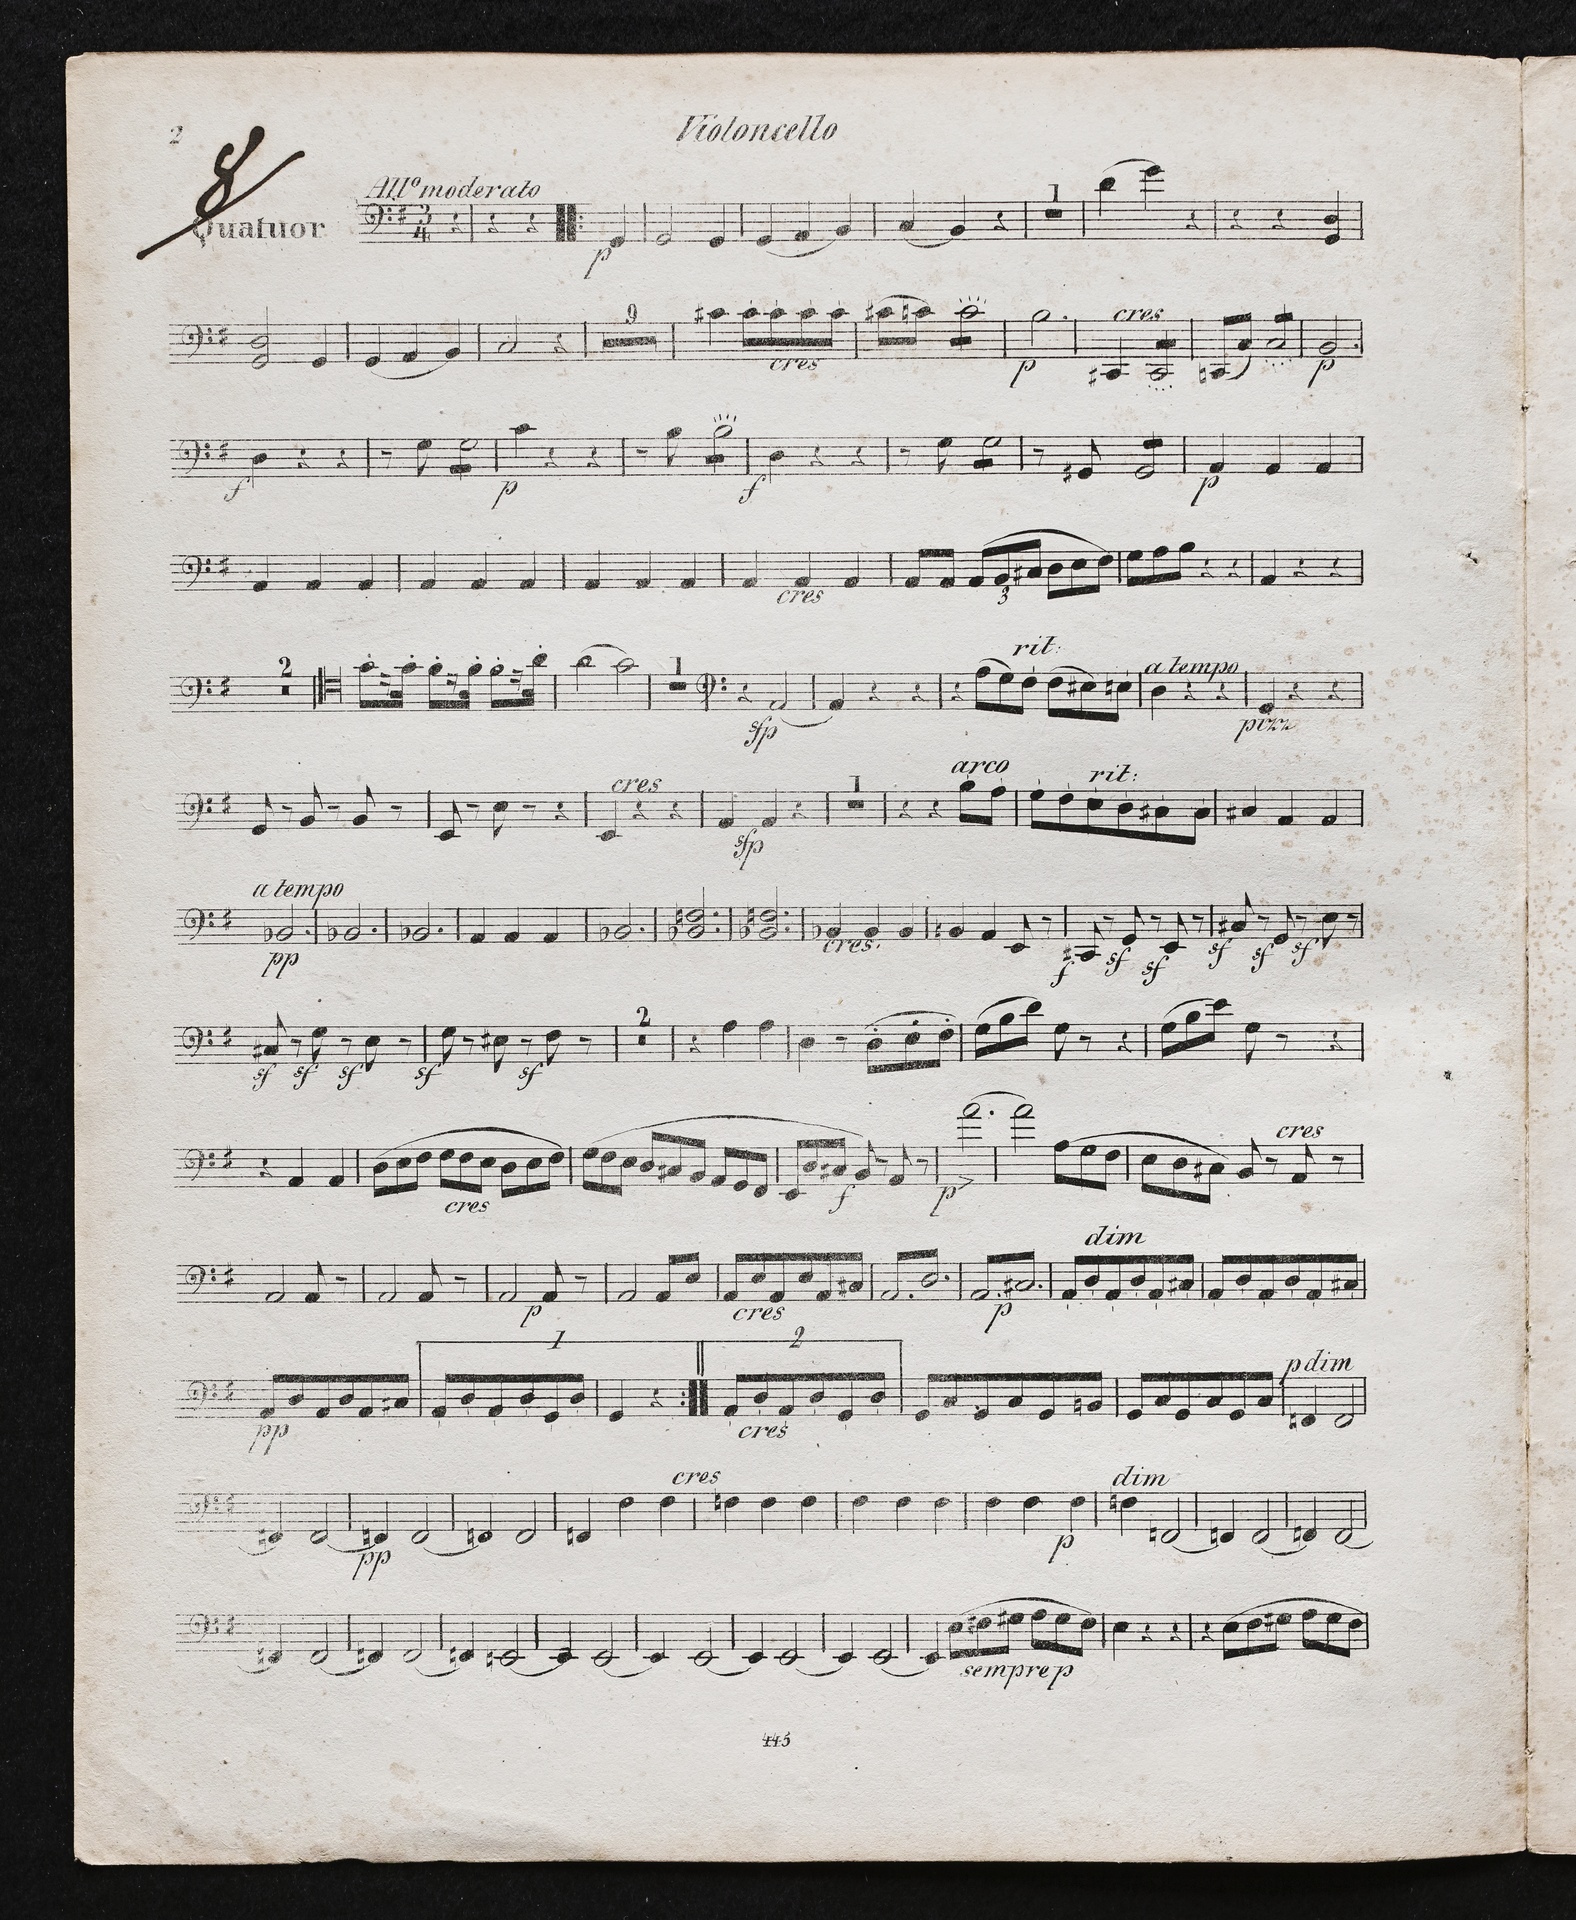 2
Violoncello
8
All° moderato
Quatuor
3
4
1
p
9
cres
cres
p
p
f
p
f
p
cres
3
2
1
rit:
a tempo
sfp
pizz
cres
1
arco
rit:
sfp
a tempo
pp
cres.
f sf sf sf sf sf
2
sf sf sf sf sf
cres
cres
f
p
dim
p
cres
p
1
2
p dim
pp
cres
cres
dim
pp
p
sempre p
445